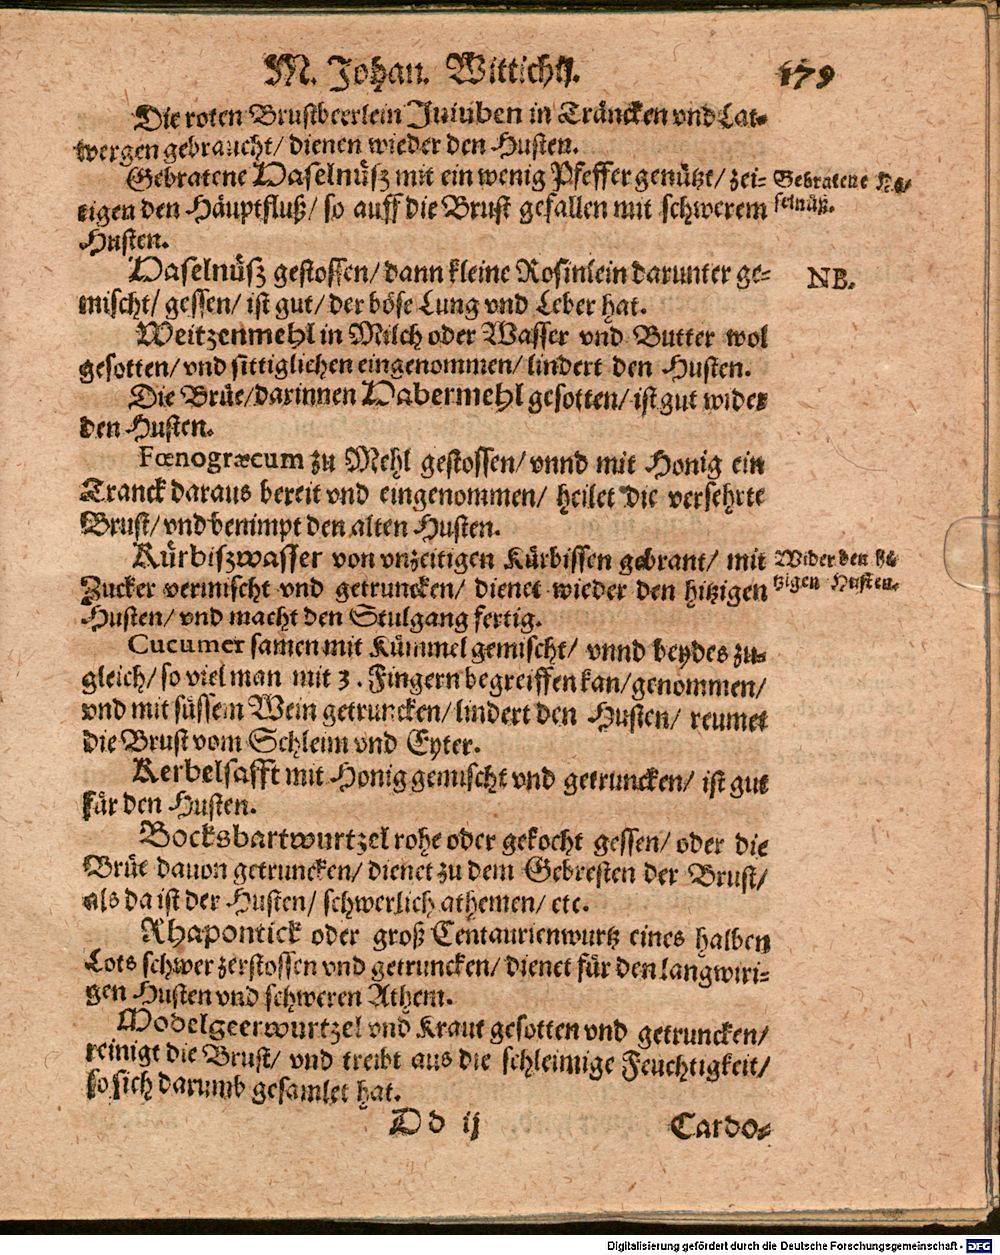 M. Johan. Wittichij. 179
Die roten Brustbeerlein Juiuben in Träncken vnd Lat-
wergen gebraucht/ dienen wieder den Husten.
Gebratene Haselnüsz mit ein wenig Pfeffer genützt/ zei-
tigen den Häuptfluß/ so auff die Brust gefallen mit schwerem
Husten.
Gebratene Ha-
selnüß.
Haselnüsz gestossen/ dann kleine Rosinlein darunter ge-
mischt/ gessen/ ist gut/ der böse Lung vnd Leber hat.
NB.
Weitzenmehl in Milch oder Wasser vnd Butter wol
gesotten/ vnd sittiglichen eingenommen/ lindert den Husten.
Die Brüe/ darinnen Habermehl gesotten/ ist gut wider
den Husten.
Fœnogræcum zu Mehl gestossen/ vnnd mit Honig ein
Tranck daraus bereit vnd eingenommen/ heilet die versehrte
Brust/ vnd benimpt den alten Husten.
Kürbiszwasser von vnzeitigen Kürbissen gebrant/ mit
Zucker vermischt vnd getruncken/ dienet wieder den hitzigen
Husten/ vnd macht den Stulgang fertig.
Wider den hi-
tzigen Husten.
Cucumer samen mit Kümmel gemischt/ vnnd beydes zu-
gleich/ so viel man mit 3. Fingern begreiffen kan/ genommen/
vnd mit süssem Wein getruncken/ lindert den Husten/ reumet
die Brust vom Schleim vnd Eyter.
Kerbelsafft mit Honig gemischt vnd getruncken/ ist gut
für den Husten.
Bocksbartwurtzel rohe oder gekocht gessen/ oder die
Brüe dauon getruncken/ dienet zu dem Gebresten der Brust/
als da ist der Husten/ schwerlich athemen/ etc.
Rhapontick oder groß Centaurienwurtz eines halben
Lots schwer zerstossen vnd getruncken/ dienet für den langwiri-
gen Husten vnd schweren Athem.
Modelgeerwurtzel vnd Kraut gesotten vnd getruncken/
reinigt die Brust/ vnd treibt aus die schleimige Feuchtigkeit/
so sich darumb gesamlet hat.
Dd ij Cardo-
Digitalisierung gefördert durch die Deutsche Forschungsgemeinschaft - DFG